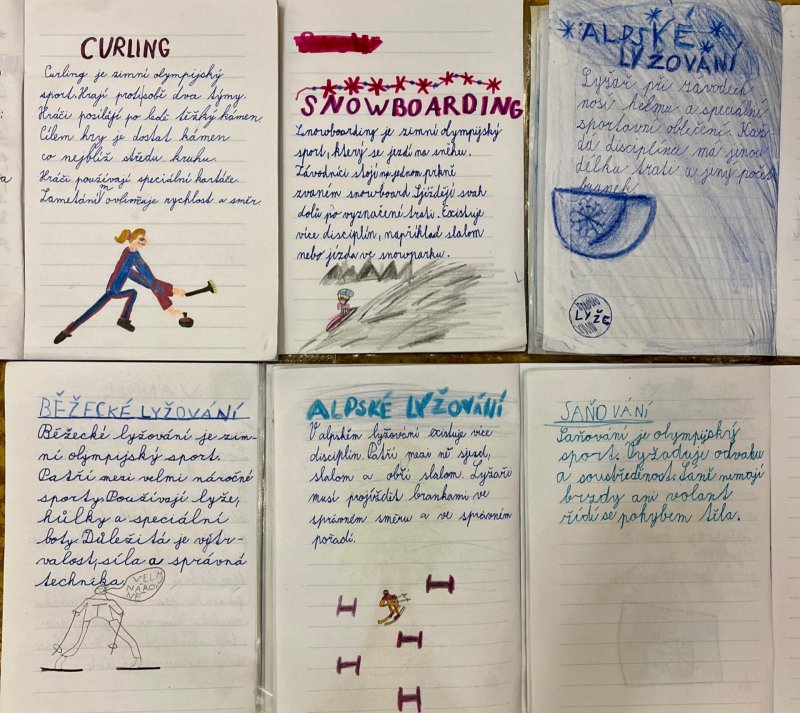 CURLING
Curling je zimní olympijský
sport. Hrají proti sobě dva týmy.
Hráči posílají po ledě těžký kámen.
Cílem hry je dostat kámen
co nejblíž středu kruhu.
Hráči používají speciální kartáče.
Zametání ovlivňuje rychlost a směr.
SNOWBOARDING
Snowboarding je zimní olympijský
sport, který se jezdí na sněhu.
Závodníci stojí na jednom prkně
zvaném snowboard. Sjíždějí svah
dolů po vyznačené trati. Existuje
více disciplín, například slalom
nebo jízda ve snowparku.
ALPSKÉ
LYŽOVÁNÍ
Lyžař při závodech
nosí helmu a speciální
sportovní oblečení. Kaž-
dá disciplína má jinou
délku trati a jiný počet
branek.
LYŽE
BĚŽECKÉ LYŽOVÁNÍ
Běžecké lyžování je zim-
ní olympijský sport.
Patří mezi velmi náročné
sporty. Používají lyže,
hůlky a speciální
boty. Důležitá je výtr-
valost, síla a správná
technika.
VELMI
NÁROČ
NÉ
ALPSKÉ LYŽOVÁNÍ
V alpském lyžování existuje více
disciplín. Patří mezi ně sjezd,
slalom a obří slalom. Lyžaři
musí projíždět brankami ve
správném směru a ve správném
pořadí.
SAŇOVÁNÍ
Saňování je olympijský
sport. Vyžaduje odvahu
a soustředěnost. Saně nemají
brzdy ani volant
řídí se pohybem těla.